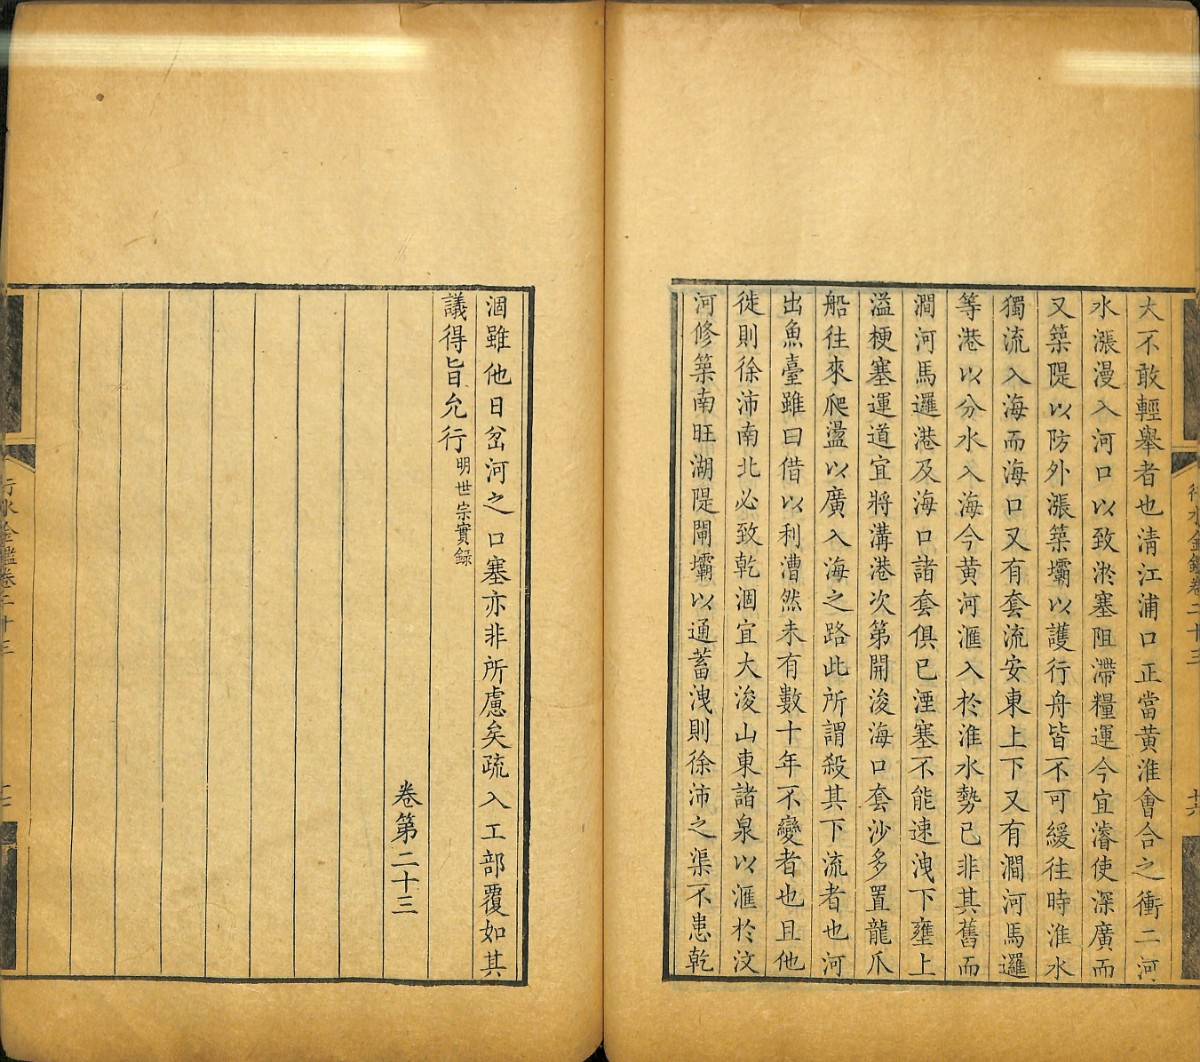 大不敢輕舉者也淸江浦口正當黃淮會合之衝二河
水漲漫入河口以致淤塞阻滯糧運今宜濬使深廣而
又築隄以防外漲築壩以護行舟皆不可緩往時淮水
獨流入海而海口又有套流安東上下又有澗河馬邏
等港以分水入海今黃河滙入於淮水勢已非其舊而
澗河馬邏港及海口諸套俱已湮塞不能速洩下壅上
溢梗塞運道宜將溝港次第開浚海口套沙多置龍爪
船往來爬盪以廣入海之路此所謂殺其下流者也河
出魚臺雖曰借以利漕然未有數十年不變者也且他
徙則徐沛南北必致乾涸宜大浚山東諸泉以滙於汶
河修築南旺湖隄閘壩以通蓄洩則徐沛之渠不患乾
行水金鑑卷二十三
涸雖他日岔河之口塞亦非所慮矣疏入工部覆如其
議得旨允行明世宗實録
卷第二十三
行水金鑑卷二十三